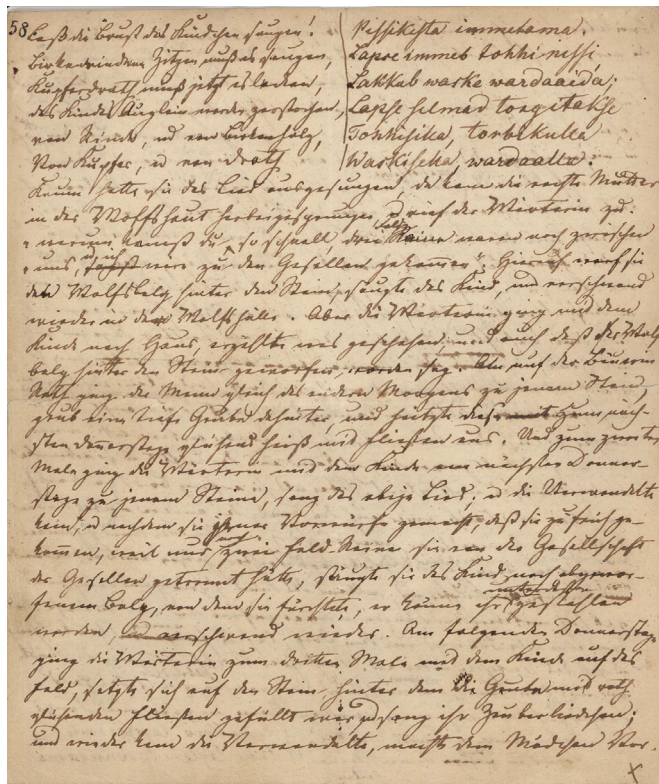 58.
Laß die Brust das Kindchen saugen!
Birkenrindene Zitzen muß es saugen,
Kupferdrath muß jetzt es lecken,
des Kindes Äuglein werden zerstochen,
von Rinde, und von Birkenholz,
Von Kupfer, u von Drath
Pessikesta immetama.
Lapse immeb tohhi nissi
Lakkub waske wardaaida;
Lapse silmad torgitakse
Tohhisika, torbikulla
Waskiseha, wardaalla.
Kaum hatte sie das Lied ausgesungen, da kam die rechte Mutter
in der Wolfshaut herbeigesprungen, u rief der Wärterin zu:
warum kamst du so schnell drei Feld Raine waren noch zwischen
uns, wir zu den Gesellen gekommen". Hierauf warf sie
den Wolfsbelg hinter den Stein, säugte das Kind, und verschwand
wieder in der Wolfshülle. Aber die Wärterin ging mit dem
Kinde nach Haus, erzählte was geschehen und auch daß der Wolfs
belg hinter den Stein geworfen worden sey. auf der Bäuerin
Rath ging der Mann gleich des andern Morgens zu jenem Stein,
grub eine tiefe Grube dahinter, und heitzte zum näch-
sten donnerstage glühend heiß mit Fliesen aus. Und zum zweiten
Male ging die Wärterin mit dem Kinde am nächsten Donner-
stage zu jenem Steine, sang das obige Lied; u die Verwandelte
kam, u nachdem sie jener Vorwürfe gemacht, daß sie zu früh ge-
kommen, weil nur noch zwei Feld-Raine sie von der Gesellschaft
der Gesellen getrennt hätte, säugte sie das Kind, nach abgewor-
fenem Belg, von dem sie fürchtete, er könne ihr gestohlen
werden, und verschwand wieder. Am folgenden Donnerstage
ging die Wärterin zum dritten Male mit dem Kinde auf das
Feld, setzte sich auf den Stein, hinter dem die Grube mit roth
glühenden Fliesen gefüllt war u sang ihr Zauberliedchen;
und wieder kam die Verwandelte, machte dem Mädchen Vor-